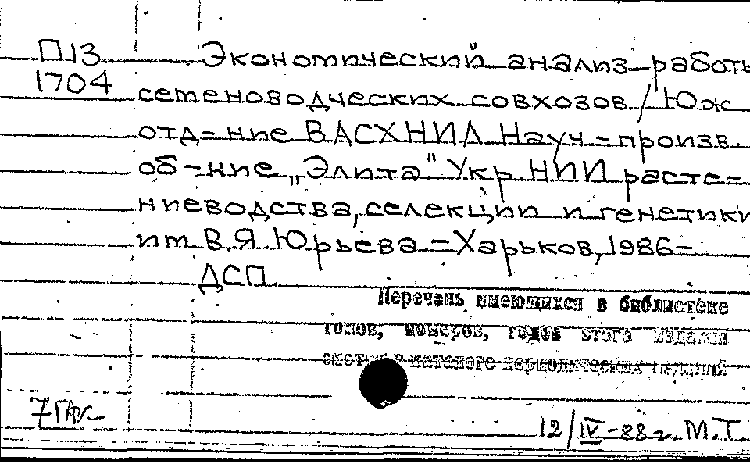 П13 Экономический анализ работы
1704 семеноводческих совхозов / Юж.
отд-ние ВАСХНИЛ. Науч.-произв.
об-ние „Элита" Укр. НИИ расте-
ниеводства, селекции и генетики
им. В.Я. Юрьева. - Харьков, 1986-
ДСП
Перечень имеющихся в библиотеке
томов, номеров, годов этого издания
смотри в каталоге периодических изданий
12/IV-88 г. М.Т.